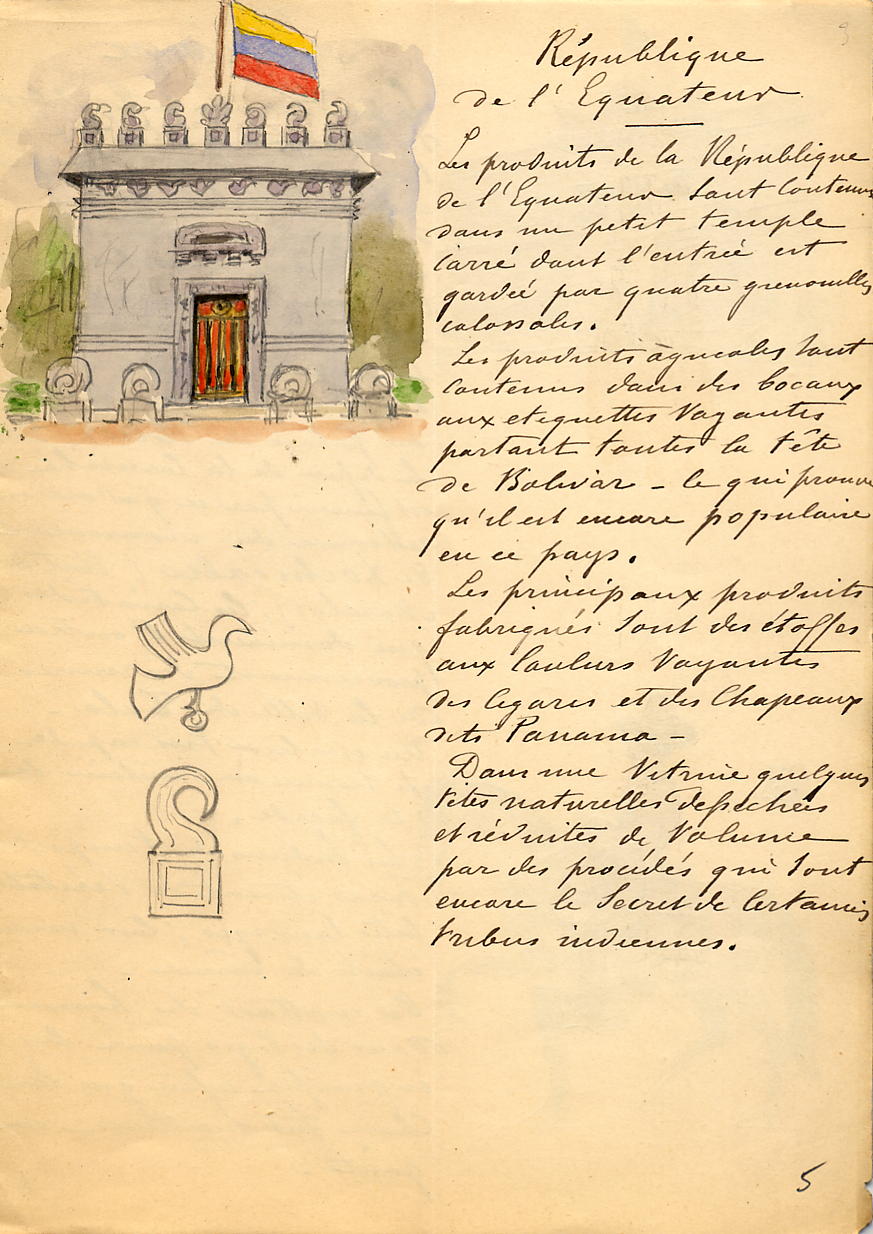 République
de l'Equateur
Les produits de la République
de l'Equateur sont contenus
dans un petit temple
carré dont l'entrée est
gardée par quatre grenouilles
colossales.
Les produits agricoles sont
contenus dans des bocaux
aux etiquettes voyantes
portant toutes la tête
de Bolivar - ce qui prouve
qu'il est encore populaire
en ce pays.
Les principaux produits
fabriqués sont des étoffes
aux couleurs voyantes
des cigares et des chapeaux
dits Panama -
Dans une vitrine quelques
têtes naturelles dessechées
et réduites de volume
par des procédés qui sont
encore le secret de certaines
tribus indiennes.
5